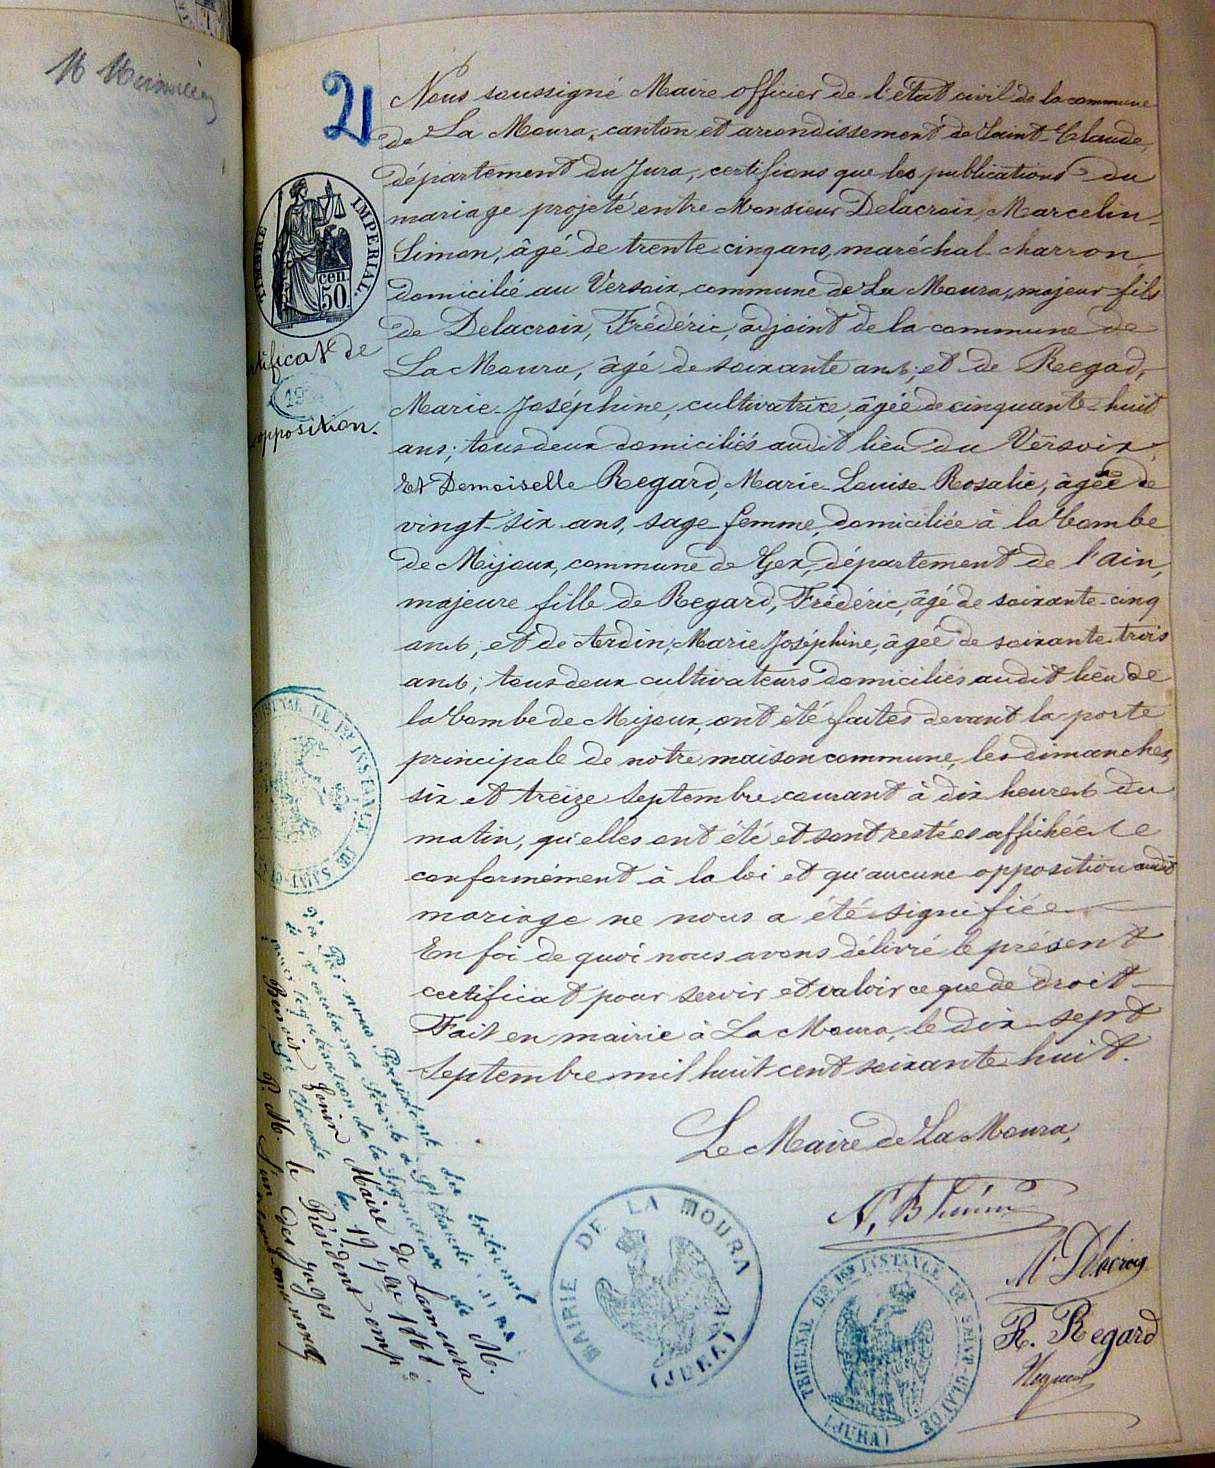 21
TIMBRE IMPERIAL.
50 cen
Nous soussigné Maire officier de l'état civil de la commune
de La Moura, canton et arrondissement de Saint-Claude,
département du Jura, certifions que les publications du
mariage projeté entre Monsieur Delacroix, Marcelin-
Simon, âgé de trente cinq ans, maréchal-charron
domicilié au Versoix, commune de La Moura, majeur fils
de Delacroix, Frédéric, adjoint de la commune de
La Moura, âgé de soixante ans; et de Regad,
Marie-Joséphine, cultivatrice, âgée de cinquante-huit
ans; tous deux domiciliés audit lieu du Versoix.
Et Demoiselle Regard, Marie-Louise-Rosalie, âgée de
vingt-six ans, sage-femme, domiciliée à la Combe
de Mijoux, commune de Gex, département de l'ain,
majeure fille de Regard, Frédéric, âgé de soixante-cinq
ans; et de Ardin, Marie Joséphine, âgée de soixante-trois
ans; tous deux cultivateurs domiciliés audit lieu de
la Combe de Mijoux, ont été faites devant la porte
principale de notre maison commune, les dimanches
six et treize Septembre courant à dix heures du
matin, qu'elles ont été et sont restées affichées
conformément à la loi et qu'aucune opposition audit
mariage ne nous a été signifiée
En foi de quoi nous avons délivré le présent
certificat pour servir et valoir ce que de droit
Fait en mairie à La Moura, le dix-sept
Septembre mil huit cent soixante-huit.
Le Maire de La Moura,
R. Regard
tificat de
opposition.
MAIRIE DE LA MOURA
(JURA)
TRIBUNAL DE 1ère INSTANCE DE SAINT-CLAUDE
(JURA)
nous Président du tribunal
de la signature de M.
Maire de Lamoura
St Claude le 19 7bre 1868
P. M. le Président emp
l'un des juges